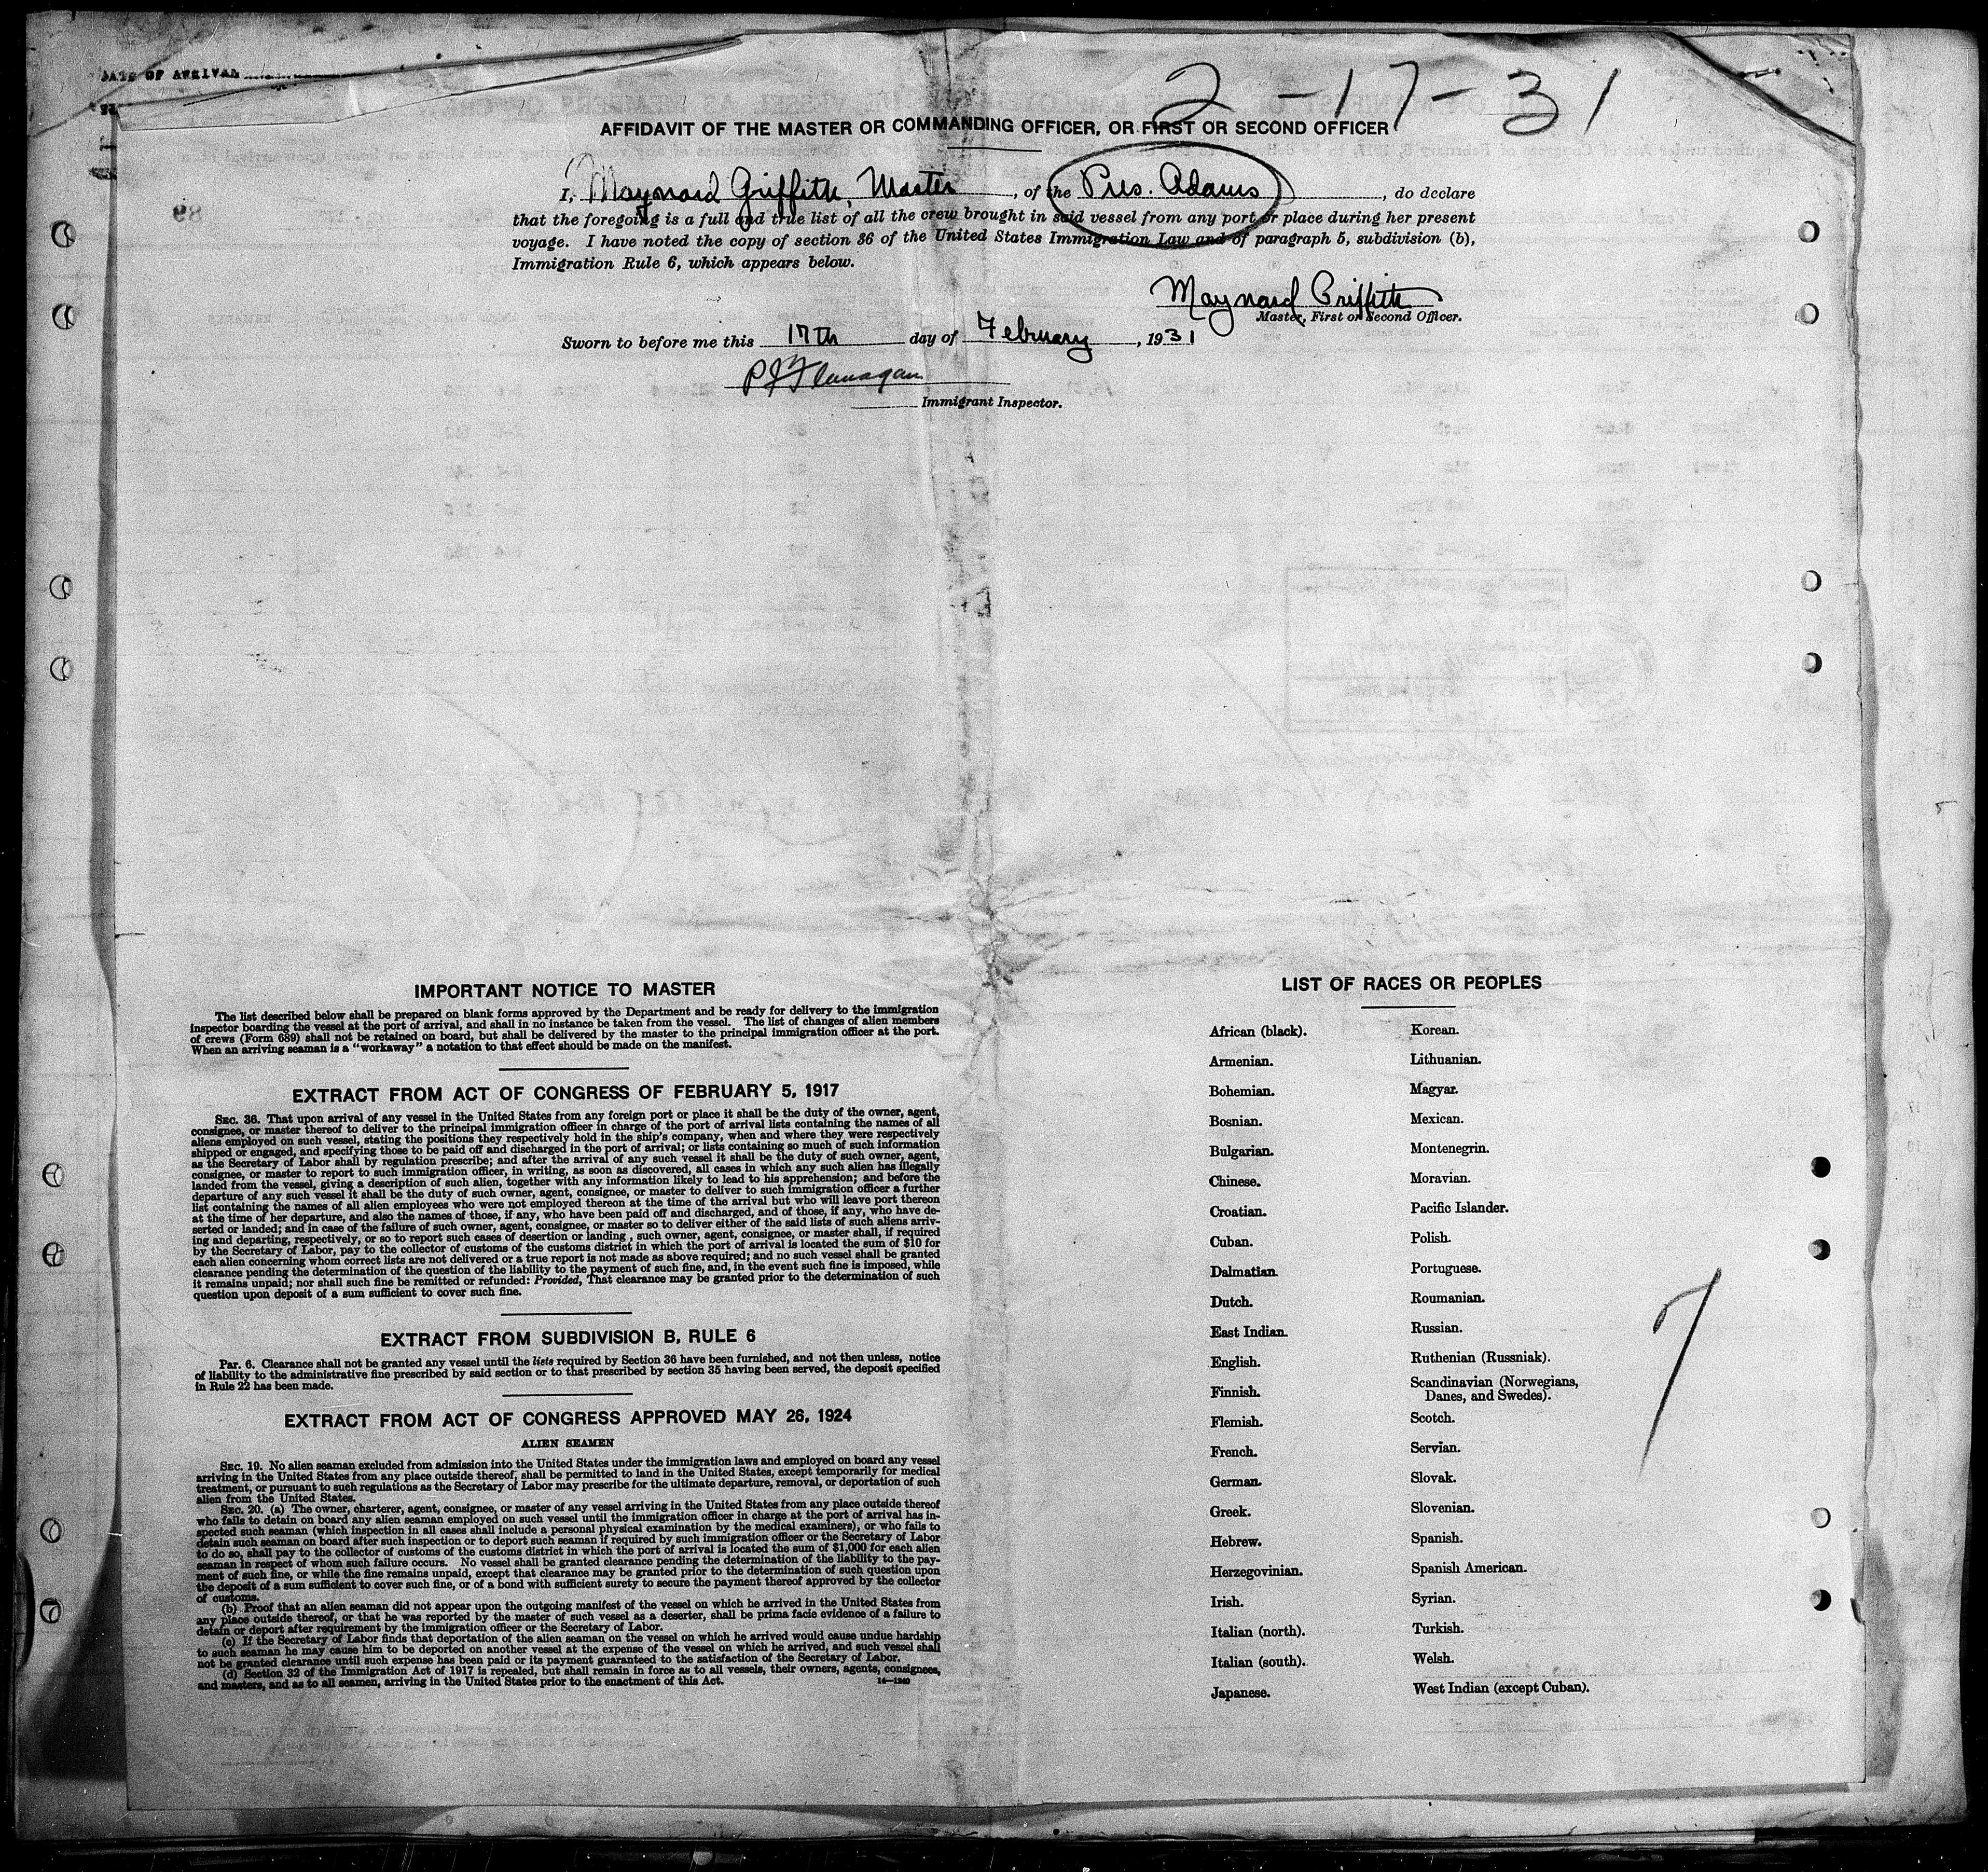 DATE OF ARRIVAL
2-17-31
AFFIDAVIT OF THE MASTER OR COMMANDING OFFICER, OR FIRST OR SECOND OFFICER
I, Maynard Griffith, Master, of the Pres. Adams, do declare
that the foregoing is a full and true list of all the crew brought in said vessel from any port or place during her present
voyage. I have noted the copy of section 36 of the United States Immigration Law and of paragraph 5, subdivision (b),
Immigration Rule 6, which appears below.
Maynard Griffith
Master, First or Second Officer.
Sworn to before me this 17th day of February, 1931
P J Flanagan
Immigrant Inspector.
IMPORTANT NOTICE TO MASTER
The list described below shall be prepared on blank forms approved by the Department and be ready for delivery to the immigration
inspector boarding the vessel at the port of arrival, and shall in no instance be taken from the vessel. The list of changes of alien members
of crews (Form 689) shall not be retained on board, but shall be delivered by the master to the principal immigration officer at the port.
When an arriving seaman is a "workaway" a notation to that effect should be made on the manifest.
EXTRACT FROM ACT OF CONGRESS OF FEBRUARY 5, 1917
SEC. 36. That upon arrival of any vessel in the United States from any foreign port or place it shall be the duty of the owner, agent,
consignee, or master thereof to deliver to the principal immigration officer in charge of the port of arrival lists containing the names of all
aliens employed on such vessel, stating the positions they respectively hold in the ship's company, when and where they were respectively
shipped or engaged, and specifying those to be paid off and discharged in the port of arrival; or lists containing so much of such information
as the Secretary of Labor shall by regulation prescribe; and after the arrival of any such vessel it shall be the duty of such owner, agent,
consignee, or master to report to such immigration officer, in writing, as soon as discovered, all cases in which any such alien has illegally
landed from the vessel, giving a description of such alien, together with any information likely to lead to his apprehension; and before the
departure of any such vessel it shall be the duty of such owner, agent, consignee, or master to deliver to such immigration officer a further
list containing the names of all alien employees who were not employed thereon at the time of the arrival but who will leave port thereon
at the time of her departure, and also the names of those, if any, who have been paid off and discharged, and of those, if any, who have de-
serted or landed; and in case of the failure of such owner, agent, consignee, or master so to deliver either of the said lists of such aliens arriv-
ing and departing, respectively, or so to report such cases of desertion or landing, such owner, agent, consignee, or master shall, if required
by the Secretary of Labor, pay to the collector of customs of the customs district in which the port of arrival is located the sum of $10 for
each alien concerning whom correct lists are not delivered or a true report is not made as above required; and no such vessel shall be granted
clearance pending the determination of the question of the liability to the payment of such fine, and, in the event such fine is imposed, while
it remains unpaid; nor shall such fine be remitted or refunded: Provided, That clearance may be granted prior to the determination of such
question upon deposit of a sum sufficient to cover such fine.
EXTRACT FROM SUBDIVISION B, RULE 6
Par. 6. Clearance shall not be granted any vessel until the lists required by Section 36 have been furnished, and not then unless, notice
of liability to the administrative fine prescribed by said section or to that prescribed by section 35 having been served, the deposit specified
in Rule 22 has been made.
EXTRACT FROM ACT OF CONGRESS APPROVED MAY 26, 1924
ALIEN SEAMEN
SEC. 19. No alien seaman excluded from admission into the United States under the immigration laws and employed on board any vessel
arriving in the United States from any place outside thereof, shall be permitted to land in the United States, except temporarily for medical
treatment, or pursuant to such regulations as the Secretary of Labor may prescribe for the ultimate departure, removal, or deportation of such
alien from the United States.
SEC. 20. (a) The owner, charterer, agent, consignee, or master of any vessel arriving in the United States from any place outside thereof
who fails to detain on board any alien seaman employed on such vessel until the immigration officer in charge at the port of arrival has in-
spected such seaman (which inspection in all cases shall include a personal physical examination by the medical examiners), or who fails to
detain such seaman on board after such inspection or to deport such seaman if required by such immigration officer or the Secretary of Labor
to do so, shall pay to the collector of customs of the customs district in which the port of arrival is located the sum of $1,000 for each alien
seaman in respect of whom such failure occurs. No vessel shall be granted clearance pending the determination of the liability to the pay-
ment of such fine, or while the fine remains unpaid, except that clearance may be granted prior to the determination of such question upon
the deposit of a sum sufficient to cover such fine, or of a bond with sufficient surety to secure the payment thereof approved by the collector
of customs.
(b) Proof that an alien seaman did not appear upon the outgoing manifest of the vessel on which he arrived in the United States from
any place outside thereof, or that he was reported by the master of such vessel as a deserter, shall be prima facie evidence of a failure to
detain or deport after requirement by the immigration officer or the Secretary of Labor.
(c) If the Secretary of Labor finds that deportation of the alien seaman on the vessel on which he arrived would cause undue hardship
to such seaman he may cause him to be deported on another vessel at the expense of the vessel on which he arrived, and such vessel shall
not be granted clearance until such expense has been paid or its payment guaranteed to the satisfaction of the Secretary of Labor.
(d) Section 32 of the Immigration Act of 1917 is repealed, but shall remain in force as to all vessels, their owners, agents, consignees,
and masters, and as to all seamen, arriving in the United States prior to the enactment of this Act. 14—1240
LIST OF RACES OR PEOPLES
African (black).
Armenian.
Bohemian.
Bosnian.
Bulgarian.
Chinese.
Croatian.
Cuban.
Dalmatian.
Dutch.
East Indian.
English.
Finnish.
Flemish.
French.
German.
Greek.
Hebrew.
Herzegovinian.
Irish.
Italian (north).
Italian (south).
Japanese.
Korean.
Lithuanian.
Magyar.
Mexican.
Montenegrin.
Moravian.
Pacific Islander.
Polish.
Portuguese.
Roumanian.
Russian.
Ruthenian (Russniak).
Scandinavian (Norwegians,
Danes, and Swedes).
Scotch.
Servian.
Slovak.
Slovenian.
Spanish.
Spanish American.
Syrian.
Turkish.
Welsh.
West Indian (except Cuban).
7